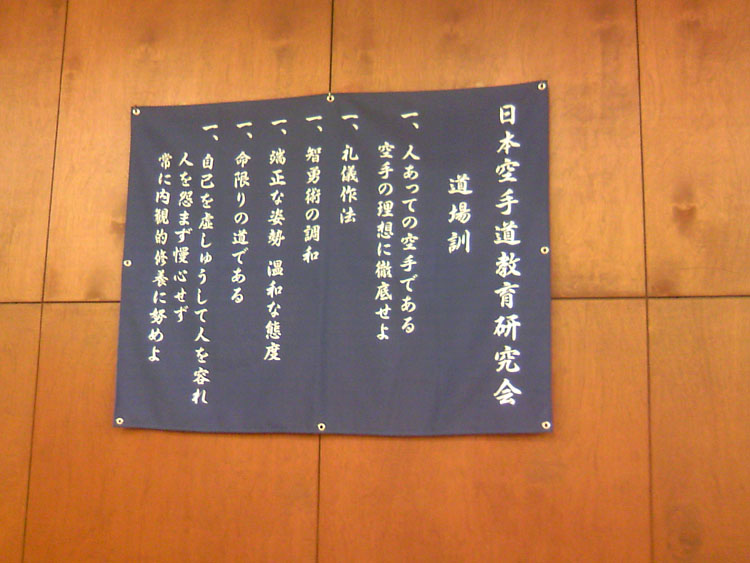 日本空手道教育研究会
道場訓
一、人あっての空手である
空手の理想に徹底せよ
一、礼儀作法
一、智勇術の調和
一、端正な姿勢 温和な態度
一、命限りの道である
一、自己を虚しゅうして人を容れ
人を怨まず慢心せず
常に内観的修養に努めよ